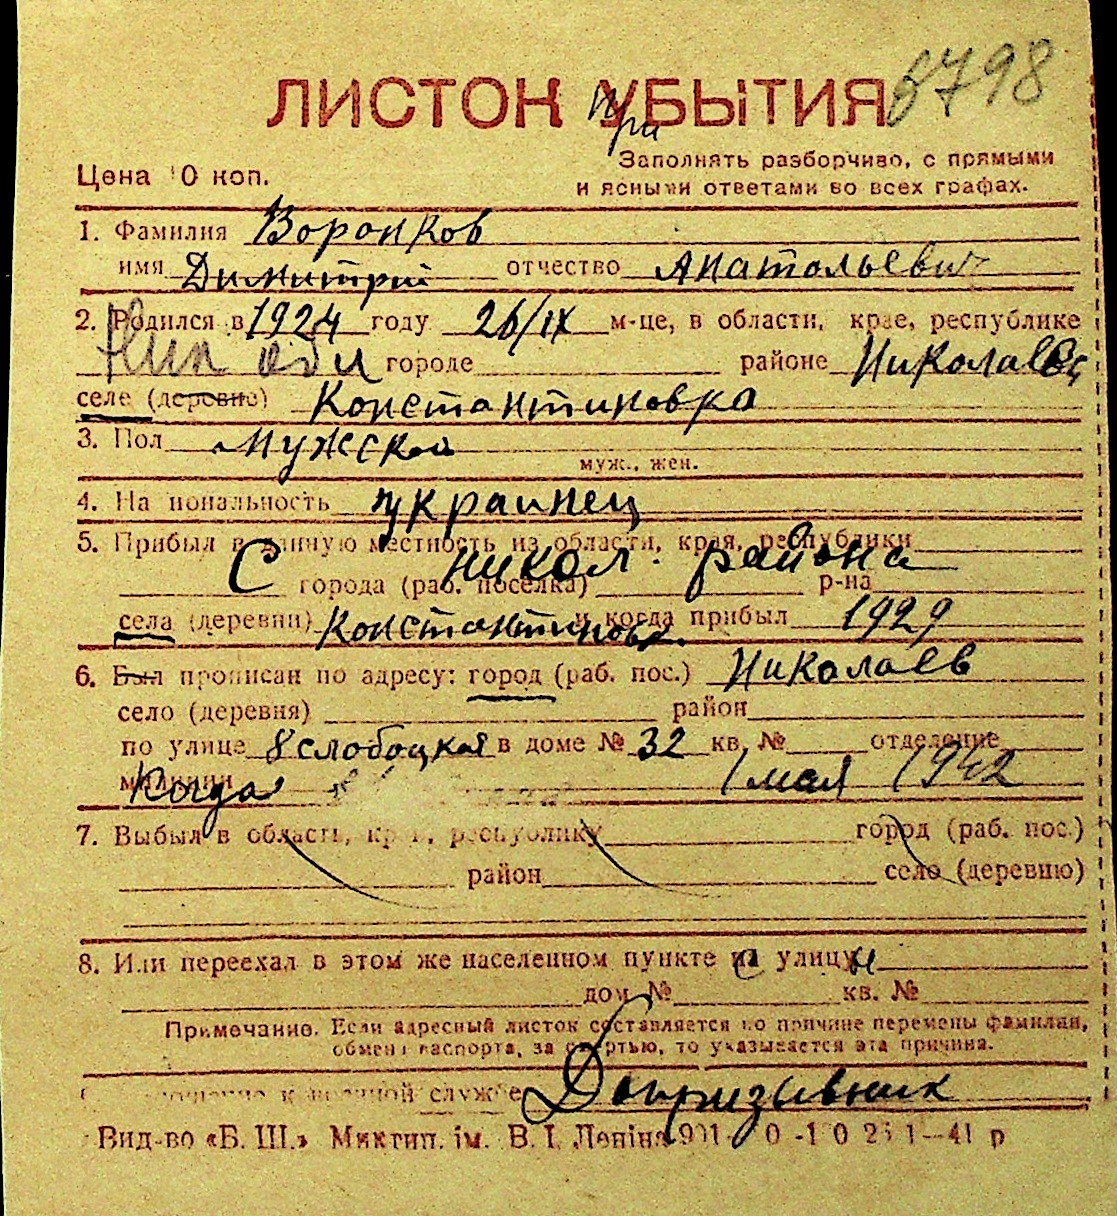 ЛИСТОК УБЫТИЯ
При
5798
Цена 10 коп.
Заполнять разборчиво, с прямыми
и ясными ответами во всех графах.
1. Фамилия Воронков
имя Димитрий отчество Анатольевич
2. Родился в 1924 году 26/IX м-це, в области, крае, республике
Ник обл городе районе Николаевс
селе (деревне) Константиновка
3. Пол Мужской
муж., жен.
4. Национальность украинец
5. Прибыл в данную местность из области, края, республики
С Никол. района
города (раб. поселка) р-на
села (деревни) Константиновк. и когда прибыл 1929
6. Был прописан по адресу: город (раб. пос.) Николаев
село (деревня) район
по улице 8 слободская в доме № 32 кв. № отделение
милиции Когда 1 мая 1942
7. Выбыл в область, край, республику город (раб. пос.)
район село (деревню)
8. Или переехал в этом же населенном пункте на улицу
с и
дом № кв. №
Примечание. Если адресный листок составляется по причине перемены фамилии,
обмена паспорта, за смертью, то указывается эта причина.
Отношение к военной службе Допризывник
Вид-во «Б. Ш.» Миктип. ім. В. І. Леніна 41 р